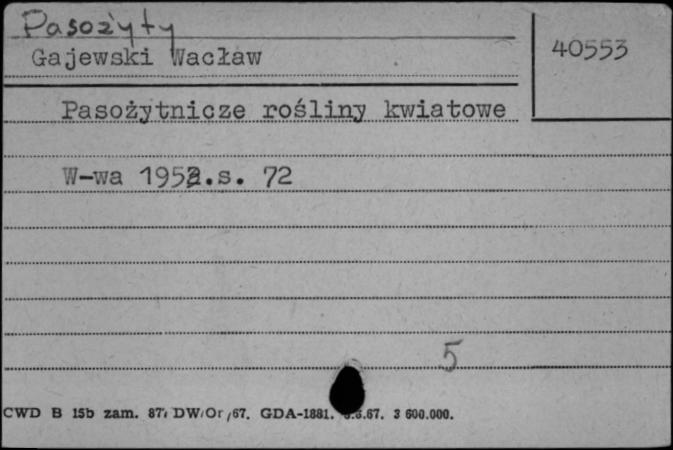 Pasożyty
Gajewski Wacław
40553
Pasożytnicze rośliny kwiatowe
W-wa 1952.s. 72
5
CWD B 15b zam. 87, DW/Or/67. GDA-1881. 67. 3 600.000.